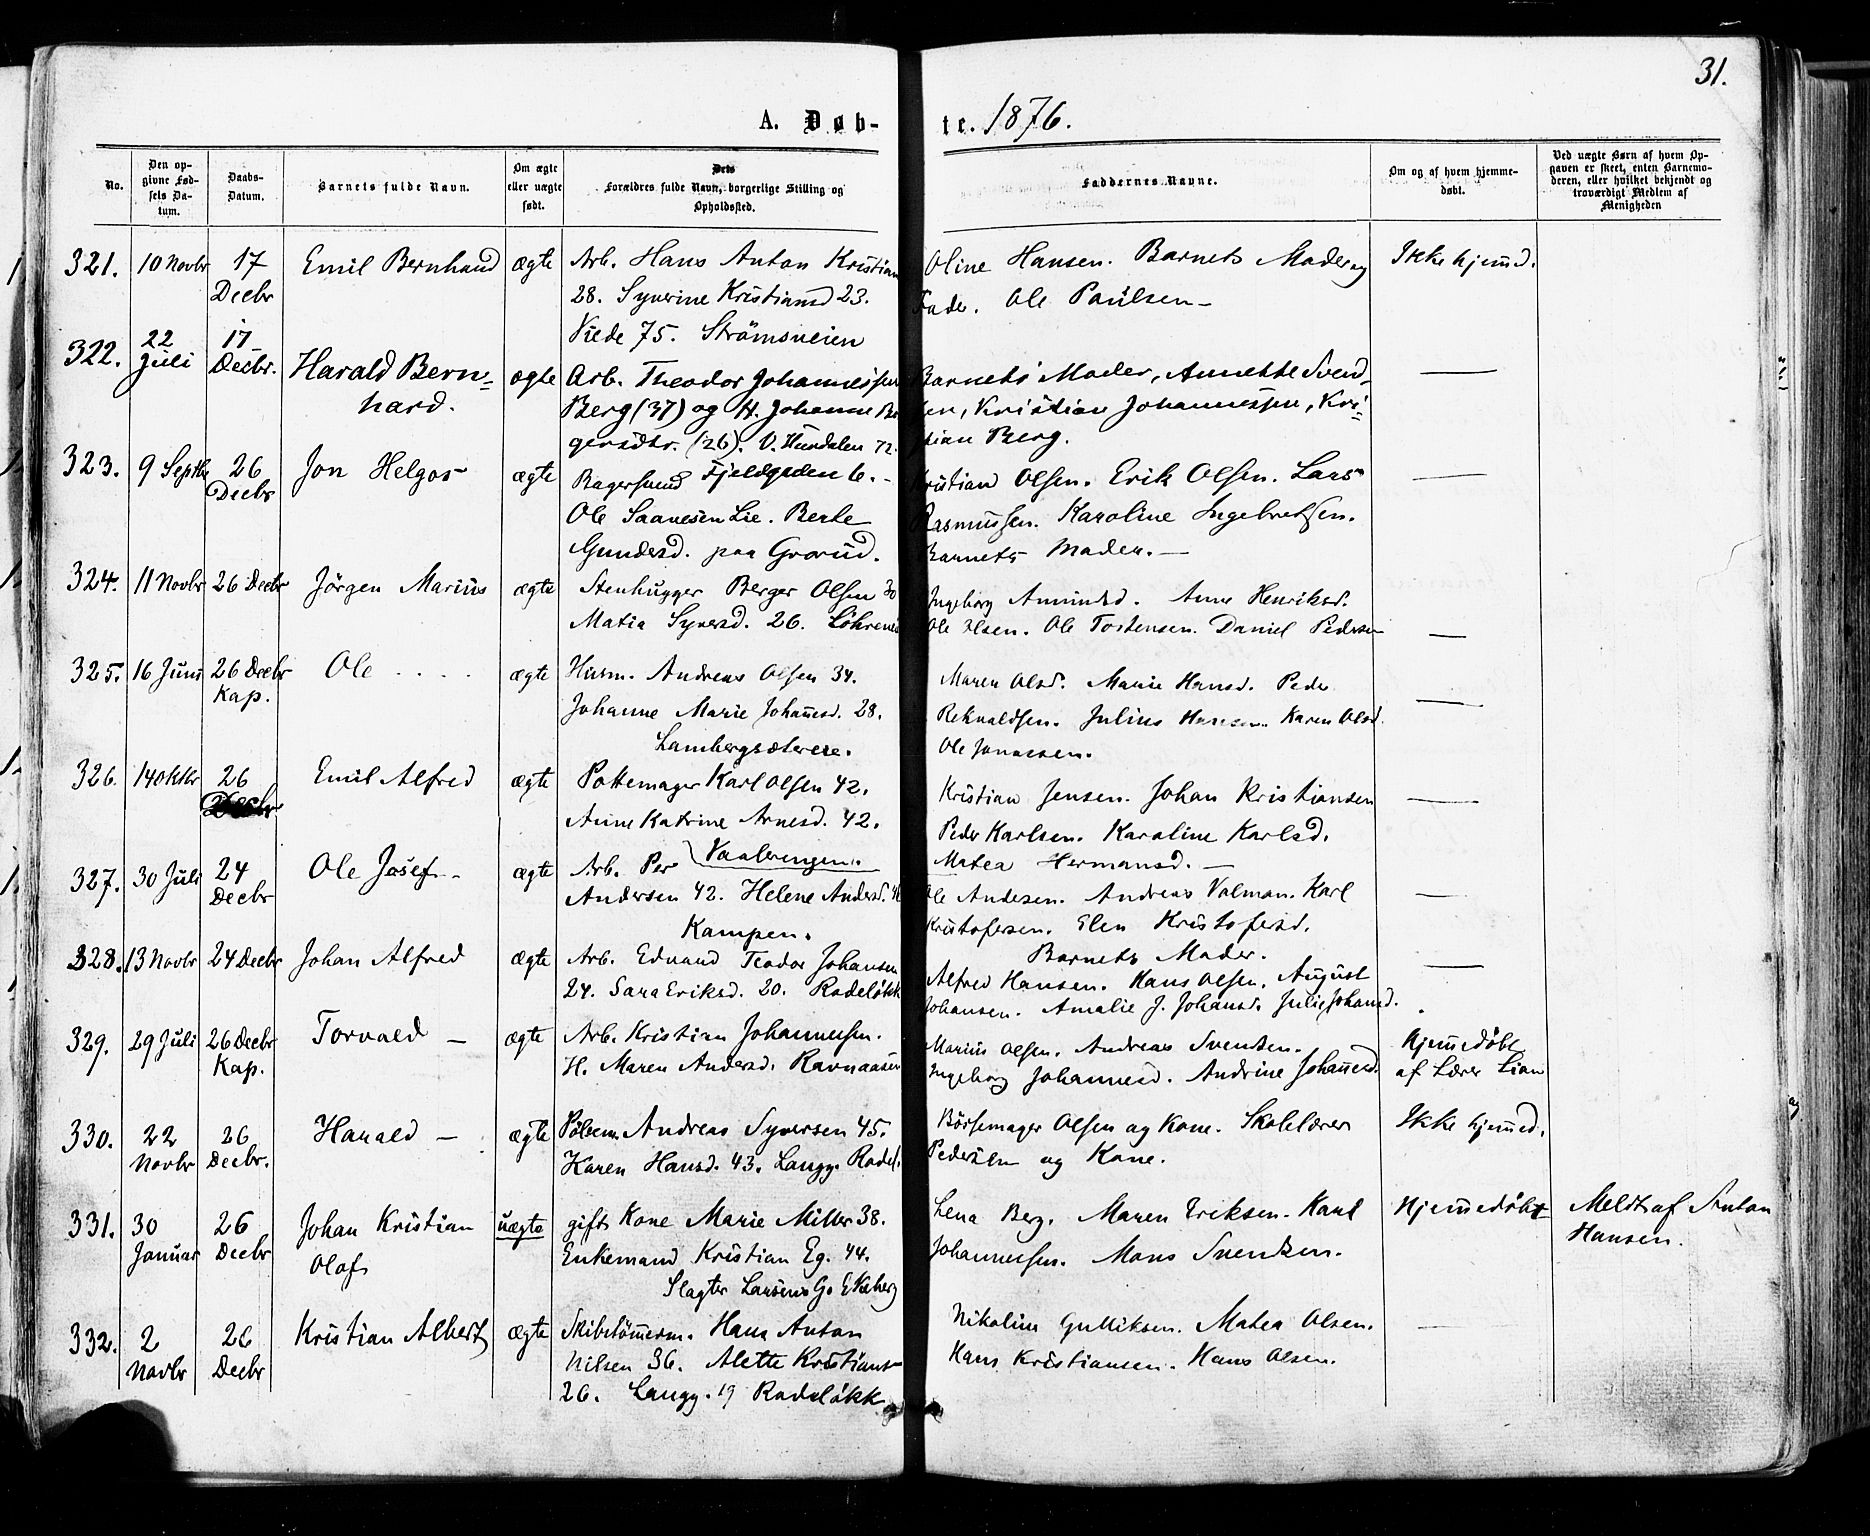 31.
A. Døb-
te. 1876.
No.
Den op-
givne Fød-
sels Da-
tum.
Daabs-
Datum.
Barnets fulde Navn.
Om ægte
eller uægte
født.
Dets
Forældres fulde Navn, borgerlige Stilling og
Opholdssted.
Faddernes Navne.
Om og af hvem hjemme-
døbt.
Ved uægte Børn af hvem Op-
gaven er skeet, enten Barnemo-
deren, eller hvilket bekjendt og
troværdigt Medlem af
Menigheden
321. 10 Novbr 17 Emil Bernhard ægte Arb. Hans Anton Kristian Oline Hansen. Barnets Moder og Ikke hjemd.
Decbr 28. Syverine Kristiansd 23. Fader. Ole Paulsen —
75. Strømsveien
322. 22 Juli 17 Decbr. Harald Bern- ægte Arb. Theodor Johannessen Barnets Moder, Annette Svend- —
hard. Berg (37) og H. Johanne Be sen, Kristian Johannessen, Kri-
gersdtr. (26). V. 72. stian Berg.
323. 9 Septbr 26 Jon Helgo ægte Bagersvend Fjeldgaden 6. - Kristian Olsen. Erik Olsen. Lars —
Decbr Ole Saanesen Lie. Berte Rasmussen. Karoline Ingebretsen.
Gundesd. paa Grorud. Barnets Moder. —
324. 11 Novbr 26 Decbr Jörgen Marius ægte Stenhugger Berger Olsen 30 Ingeborg Amundsd. Anne Henriksd.
Matia Syversd. 26. Ole Olsen. Ole Tostensen. Daniel Pedersen —
325. 16 Juni 26 Decbr Ole . . . . ægte Husm. Andreas Olsen 34. Maren Olsd. Marie Hansd. Peder
Kap. Johanne Marie Johannesd. 28. Julius Hansen. Karen Olsd. —
Lambergsæterere. Ole Jonassen.
326. 14 Oktbr 26 Emil Alfred ægte Pottemager Karl Olsen 42. Kristian Jensen. Johan Kristiansen —
Decbr Anne Katrine Arnesd. 42. Peder Karlsen. Karoline Karlsd.
Vaalerengen. Matea Hermansd. —
327. 30 Juli 24 Ole Josef - ægte Arb. Per Ole Andersen. Andreas Valman. Karl —
Decbr Andersen 42. Helene Andersd. Kristofersen. Elen Kristofersd.
Kampen. Barnets Moder.
328. 13 Novbr 24 Decbr Johan Alfred ægte Arb. Edvard Teodor Johansen Alfred Hansen. Hans Olsen. August —
24. Sara Eriksd. 20. Rodeløkk Johansen. Amalie J. Johansd. Julie Johansd.
329. 29 Juli 26 Decbr Torvald — ægte Arb. Kristian Johannessen. Marius Olsen. Andreas Svendsen. Hjemmedøbt
Kap. H. Maren Andersd. Ravnaasen Ingeborg Johannesd. Andrine Johannesd. af Lærer Lian
330. 22 26 Harald — ægte Andreas Syversen 45. Börsemager Olsen og Kone. Skolelærer Ikke hjemmed.
Novbr Decbr. Karen Hansd. 43. Langg. Rodel. Pedersen og Kone.
331. 30 26 Johan Kristian uægte gift Kone Marie Miller 38. Lena Berg. Maren Eriksen. Karl Hjemmedøbt Meldt af Anton
Januar Decbr Olaf Enkemand Kristian Eg. 44. Johannessen. Mons Svendsen. Hansen.
Slagter Larsens G. Ekeberg
332. 2 26 Kristian Albert ægte Skibstömmerm. Hans Anton Nikoline Gulliksen. Matea Olsen. —
Novbr Decbr Nilsen 36. Alette Kristians Hans Kristiansen. Hans Olsen.
26. Langg. 19 Rodeløkk